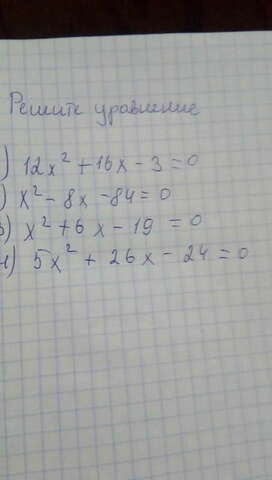 Решите уравнение
) 12x² + 16x - 3 = 0
) x² - 8x - 84 = 0
3) x² + 6x - 19 = 0
4) 5x² + 26x - 24 = 0